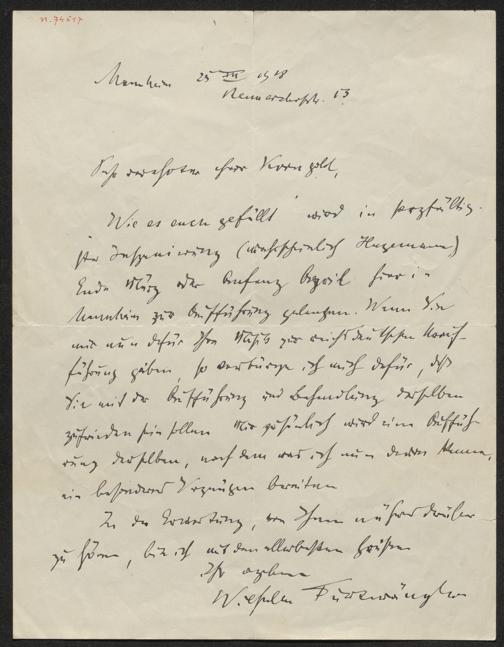 n. 74517
Mannheim 25 XII 1918
Rennershofstr. 13
Sehr verehrter Herr Korngold,
"Wie es euch gefällt" wird in sorgfältig-
ster Inszenierung (wahrscheinlich Hagemann)
Ende März oder Anfang April hier in
Mannheim zur Aufführung gelangen. Wenn Sie
mir nun dafür Ihre Musik zur reichsdeutschen Urauf-
führung geben, so verbürge ich mich dafür, daß
Sie mit der Aufführung und Behandlung derselben
zufrieden sein sollen. Mir persönlich wird eine Auffüh-
rung derselben, nach dem was ich nun davon kenne,
ein besonderes Vergnügen bereiten
In der Erwartung, von Ihnen näheres darüber
zu hören, bin ich mit den allerbesten Grüßen
Ihr ergebener
Wilhelm Furtwängler